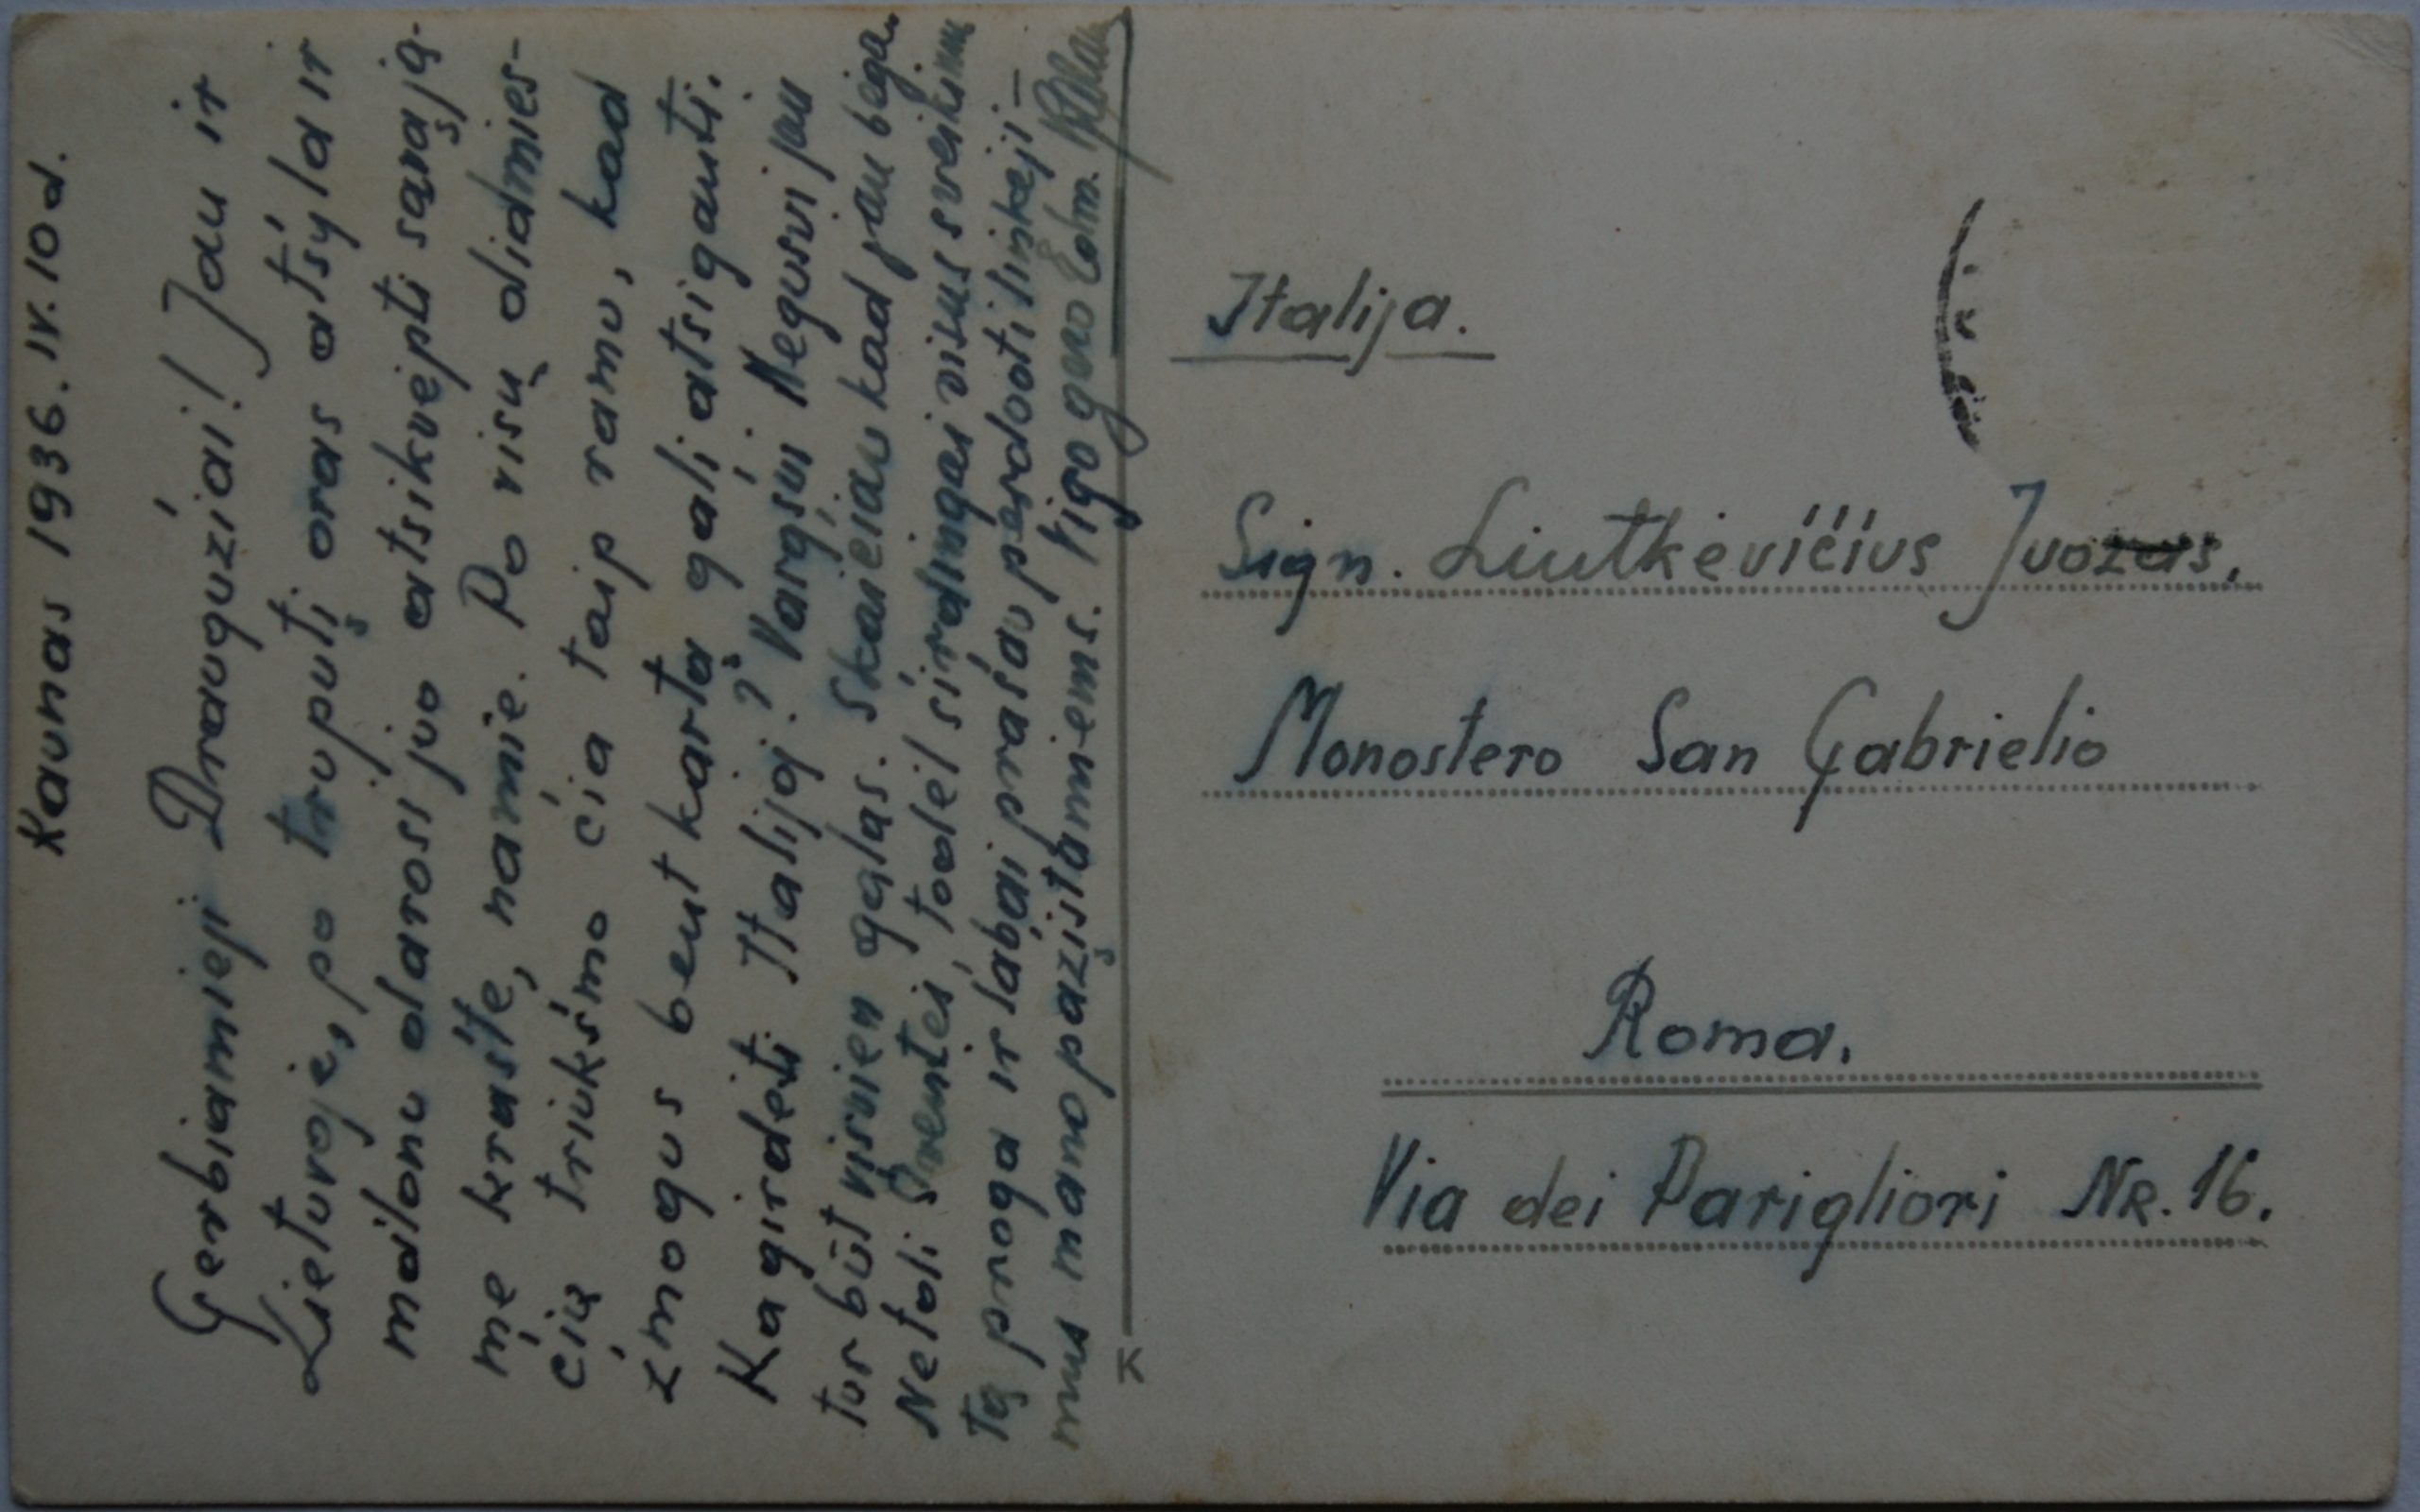 Kaunas 1936. IV. 10 d.
Gerbiamieji Draugužiai! Jau ir
Lietuvoje, po truputį oras atšyla ir
malonu darosi juo atsikvėpti savaja-
me krašte, namie. Po visų didmies-
čių triukšmo čia taip ramu, kad
žmogus bent kartą gali atsigauti.
Ka girdėti Italijoj? Vargšui Negusui jau
tur būt visvien galas. Skaičiau kad jau bėga.
Netoli Šventės, todėl širdingai visus sveikinu
tą proga ir labai prašau perduoti linkėji-
mus mano pažįstamiems. Viso gero Edm.
K
Italija.
Sign. Liutkevičius Juozas.
Monostero San Gabrielio
Roma.
Via dei Parigliori NR. 16.